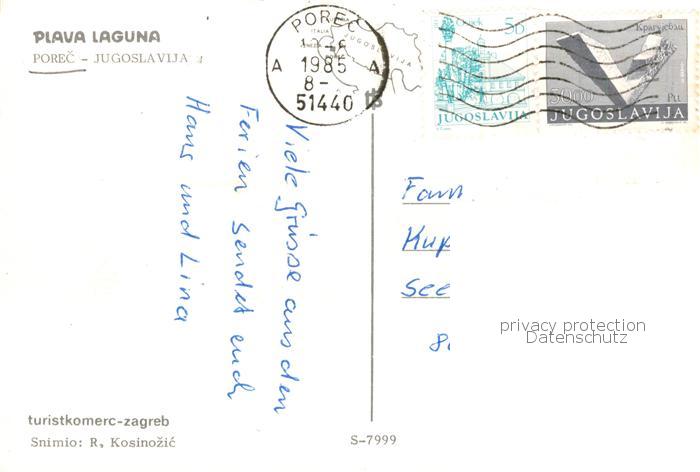 PLAVA LAGUNA
POREČ - JUGOSLAVIJA
POREČ
1985
A A
8-
51440
ITALIA
JUGOSLAVIJA
5.-
JUGOSLAVIJA
50.00
JUGOSLAVIJA
Viele Grüsse aus den
Ferien sendet euch
Hans und Lina
Fam
Kup
See
8
privacy protection
Datenschutz
turistkomerc-zagreb
Snimio: R, Kosinožić
S-7999